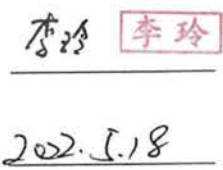 李玲 李玲
2022.5.18